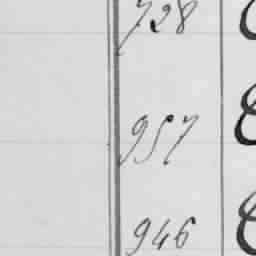 728
957
946